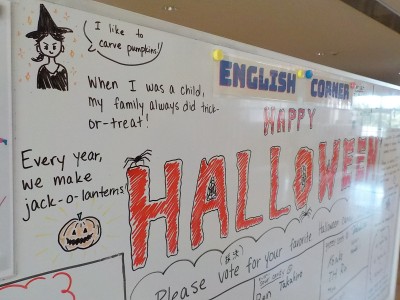 I like to
carve pumpkins!!
ENGLISH CORNER
When I was a child,
my family always did trick-
or-treat!
HAPPY
HALLOWEEN
Every year,
we make
jack-o-lanterns!
Please vote for your favorite Halloween